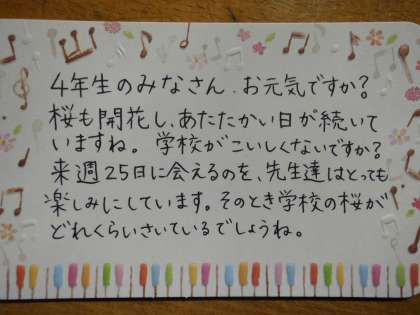 4年生のみなさん、お元気ですか?
桜も開花し、あたたかい日が続いて
いますね。学校がこいしくないですか?
来週25日に会えるのを、先生達はとっても
楽しみにしています。そのとき学校の桜が
どれくらいさいているでしょうね。